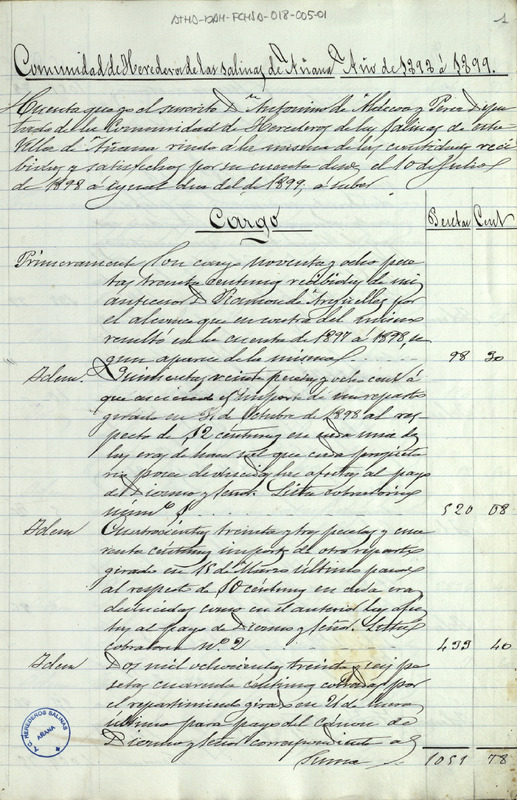 ATHA-DAH-FCHSA-018-005-01
1
Comunidad de Herederos de las Salinas de Añana Año de 1898 á 1899.
Cuenta que yo el suscrito Dn Antonino de Aldecoa y Perea Dipu
tado de la Comunidad de Herederos de las Salinas de esta
Villa de Añana rindo á la misma de las cantidades reci
bidas y satisfechas por su cuenta desde el 10 de Julio
de 1898 á igual dia del de 1899, á saber
Cargo
Pesetas Cent
Primeramente Son cargo noventa y ocho pese
tas treinta centimos recibidas de mi
antecesor D. Ramon de Arguelles por
el alcance que en contra del mismo
resultó en la cuenta de 1897 á 1898, se
gun aparece de la misma 98 30
Idem. Quinientas veinte pesetas y ocho cent á
que asciende el importe de un reparto
girado en de Octubre de 1898 al res
pecto de 12 centimos en cada una de
las eras de hacer sal que cada propieta
rio posee afectas al pago
del Diezmo y Señ. Lista cobratoria
núm.º 520 08
Idem Cuatrocientas treinta y tres pesetas y cua
renta centimos importe de otro reparto
girado en 15 de Marzo último pasado
al respecto de 10 céntimos en cada era
como en el anterior las afec
tas al pago de Diezmo y Señ. Lista
cobratoria Nº 2 433 40
Idem Dos mil ochocientas treinta y seis pe
setas cuarenta céntimos cobradas por
el repartimiento girado en de Enero
último para pago del cánon de
Diezmo y Señ correspondiente al
Suma 1051 78
A.C. HEREDEROS SALINAS
AÑANA